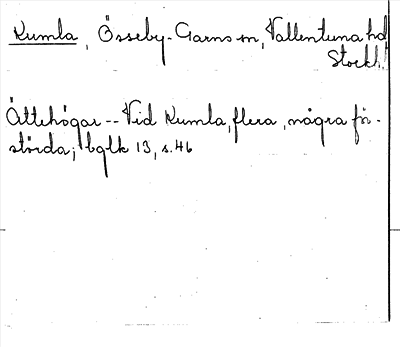 Kumla, Össeby-Garns sn, Vallentuna hd
Stockh.
Ättehögar -- Vid Kumla, flera, några för-
störda; bglk 13, s. 46